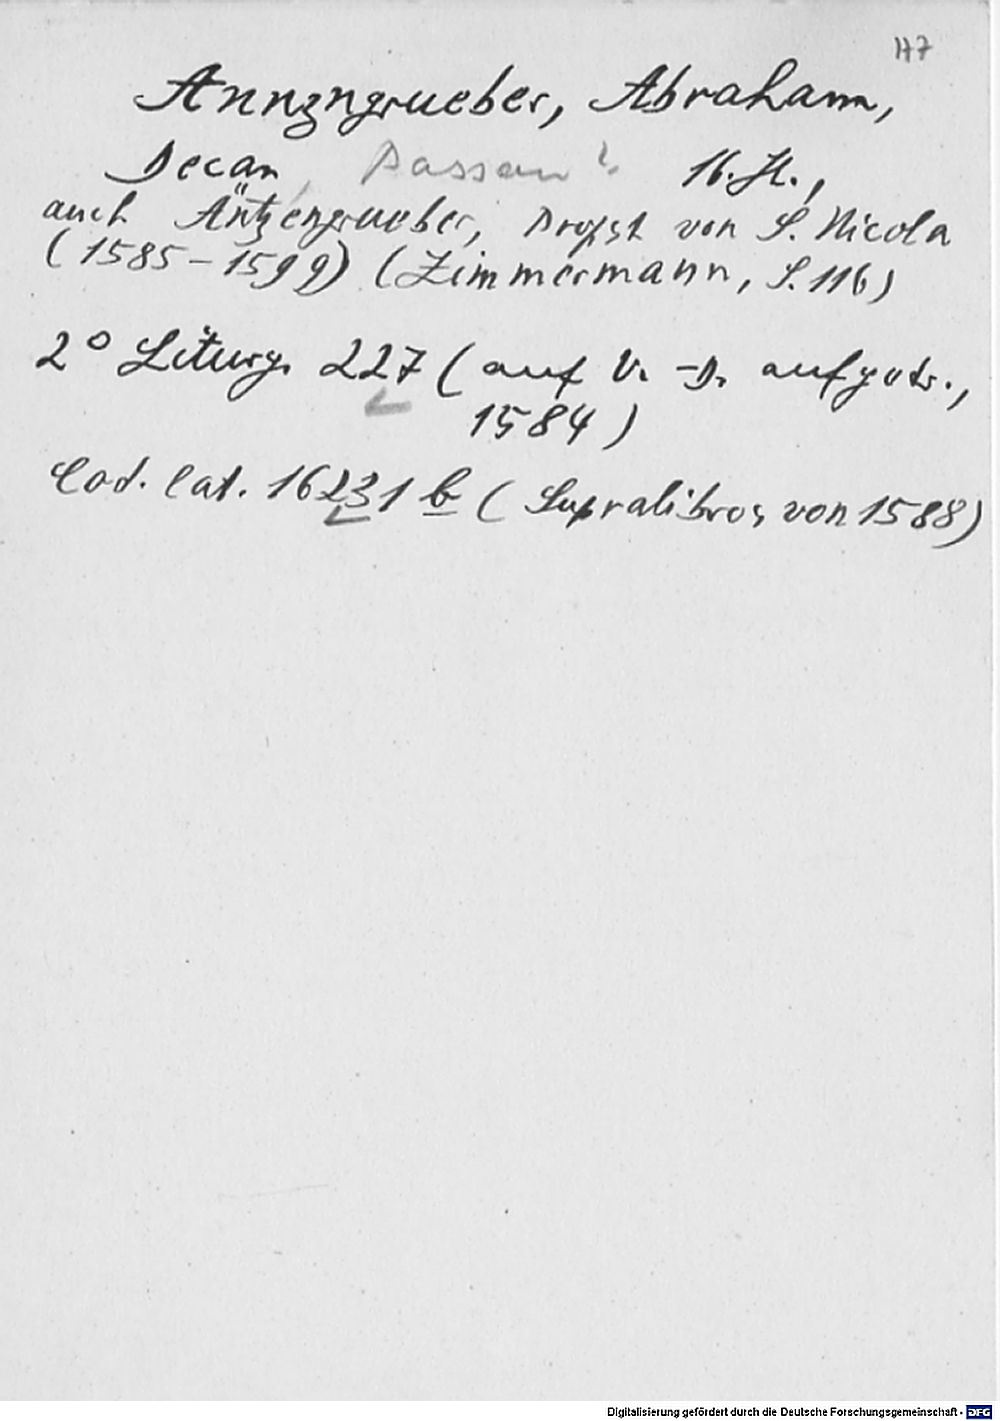 117
Annzngrueber, Abraham,
Decan, Passau? 16. Jh.,
auch Äntzengrueber, Propst von S. Nicola
(1585-1599) (Zimmermann, S. 116)
2° Liturg. 227 (auf V.-D. aufgedr.,
1584)
Cod. lat. 16231 b (Supralibros von 1588)
Digitalisierung gefördert durch die Deutsche Forschungsgemeinschaft - DFG